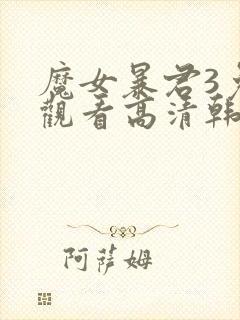 魔女暴君3
觀看高清韓
阿薩姆